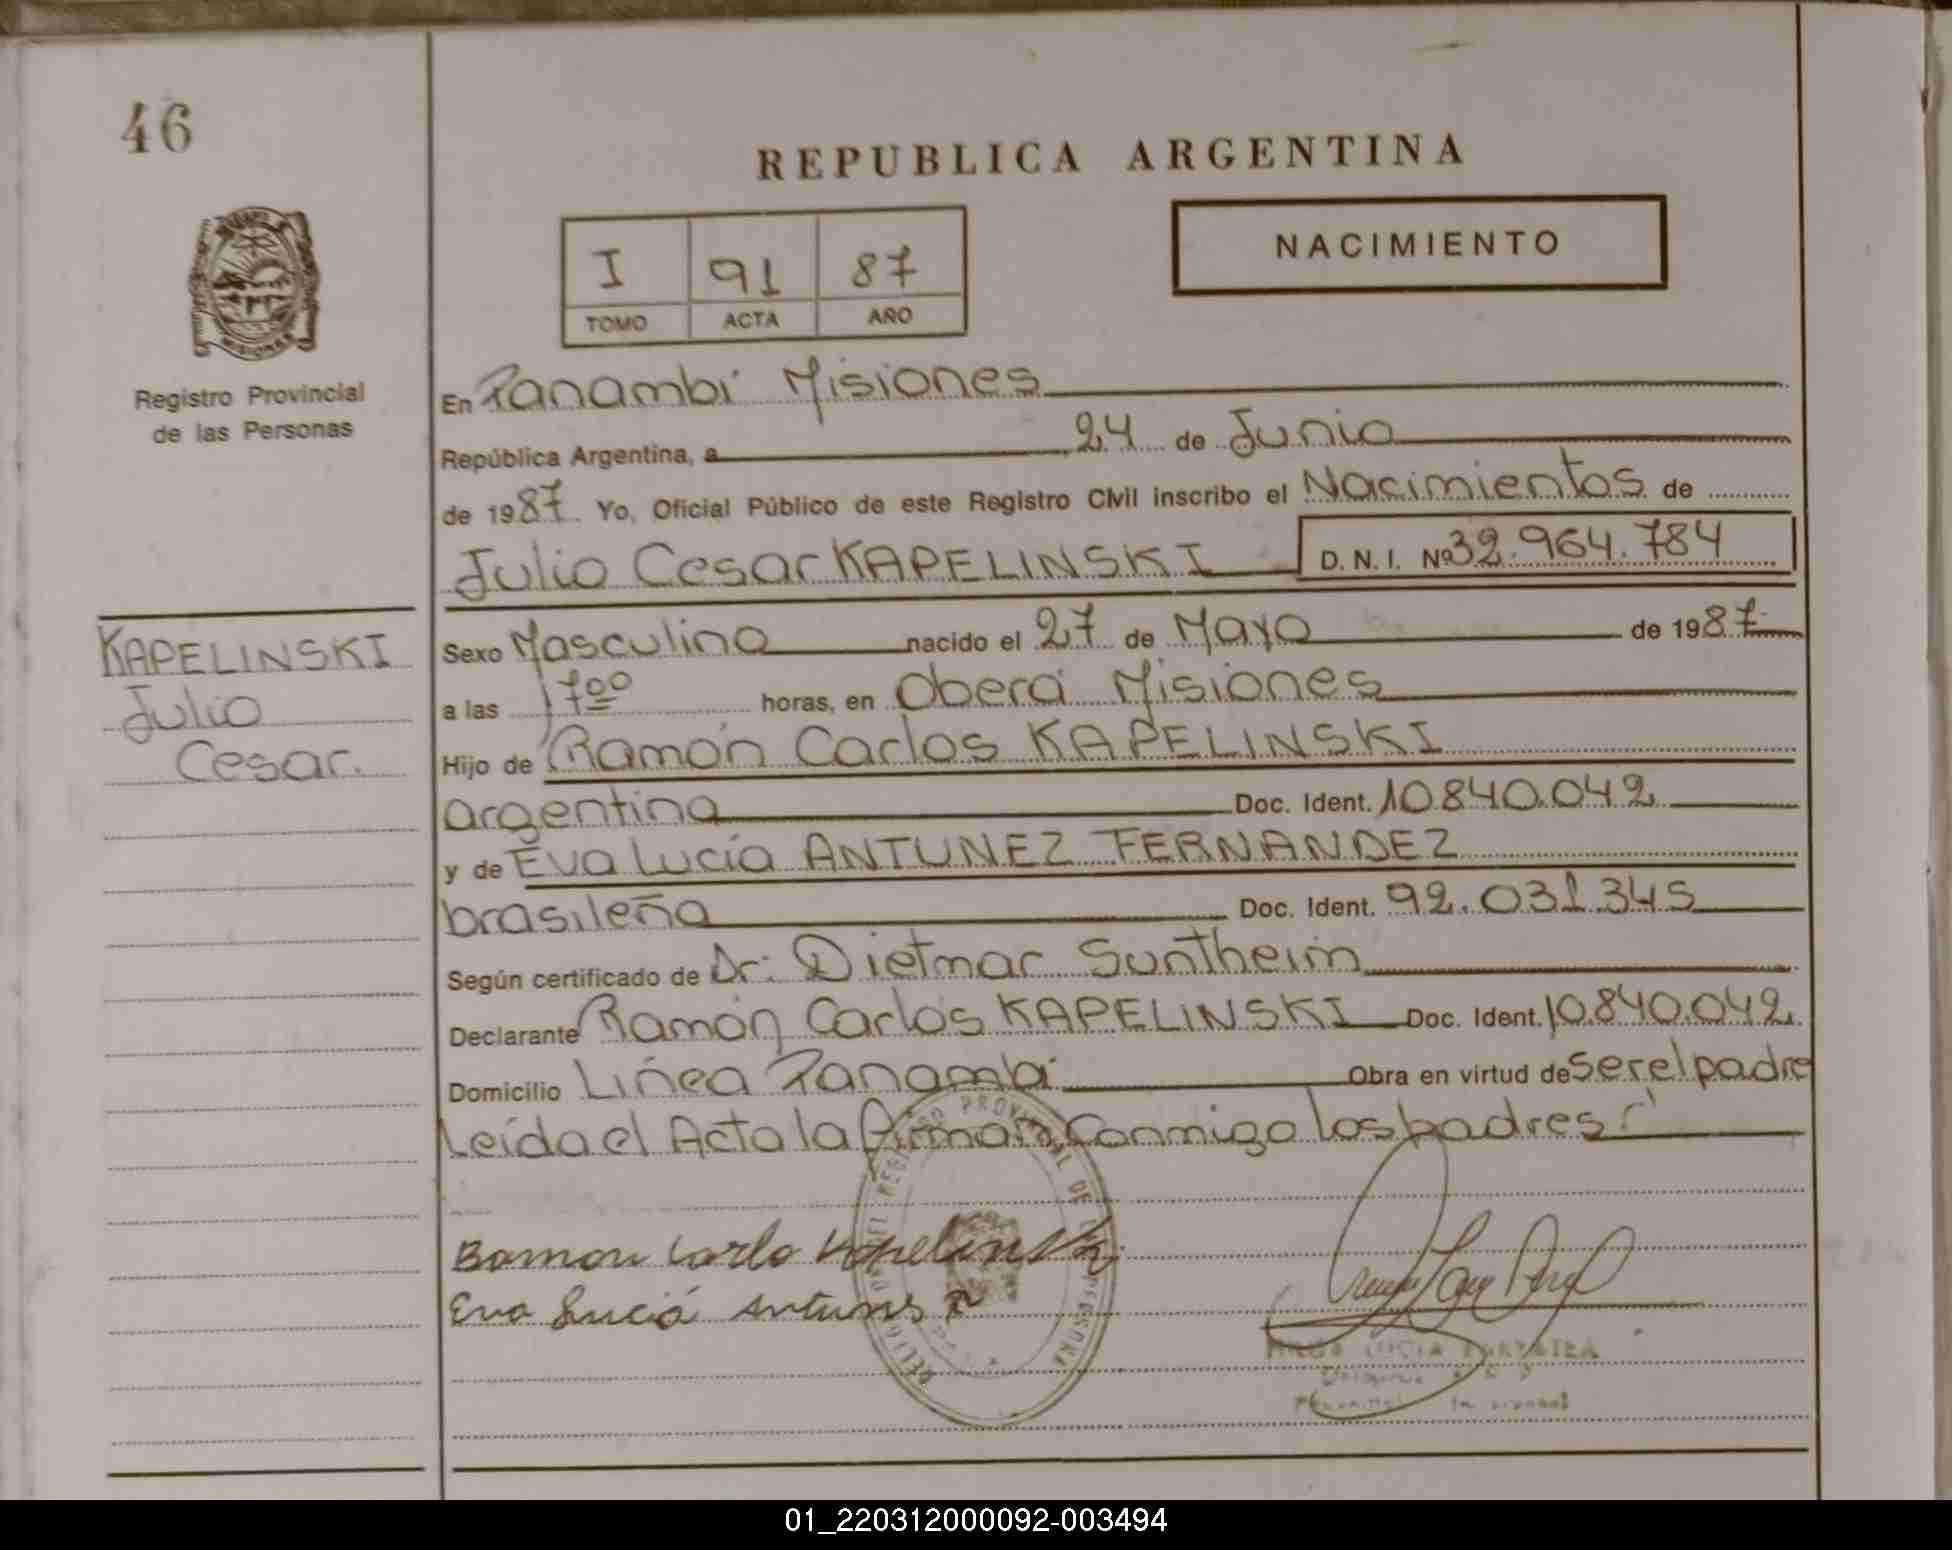 46
REPUBLICA ARGENTINA
NACIMIENTO
I 91 87
TOMO ACTA AÑO
MISIONES
Registro Provincial
de las Personas
En Panambí Misiones
República Argentina, a 24 de Junio
de 1987 Yo, Oficial Público de este Registro Civil inscribo el Nacimientos de
Julio Cesar KAPELINSKI D. N. I. Nº 32.964.784
KAPELINSKI
Julio
Cesar.
Sexo Masculino nacido el 27 de Mayo de 1987
a las 17ºº horas, en Oberá Misiones
Hijo de Ramón Carlos KAPELINSKI
argentino Doc. Ident. 10.840.042
y de Eva Lucía ANTUNEZ FERNANDEZ
brasileña Doc. Ident. 92.031.345
Según certificado de Dr. Dietmar Suntheim
Declarante Ramón Carlos KAPELINSKI Doc. Ident. 10.840.042
Domicilio Línea Panambí Obra en virtud de ser el padre
Leída el Acta la firman conmigo los padres
REGISTRO PROVINCIAL DE LAS PERSONAS
Ramon Carlo Kapelinski
Eva Lucía Antunes F
LUCIA
01_220312000092-003494